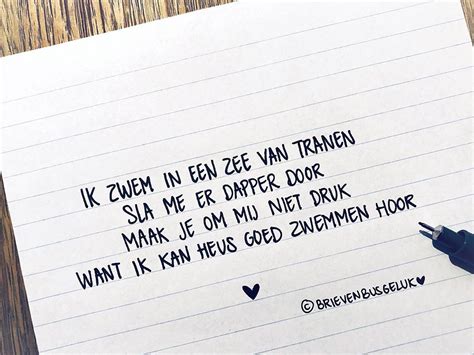 IK ZWEM IN EEN ZEE VAN TRANEN
SLA ME ER DAPPER DOOR
MAAK JE OM MIJ NIET DRUK
WANT IK KAN HEUS GOED ZWEMMEN HOOR
♥
© BRIEVENBUSGELUK ♥